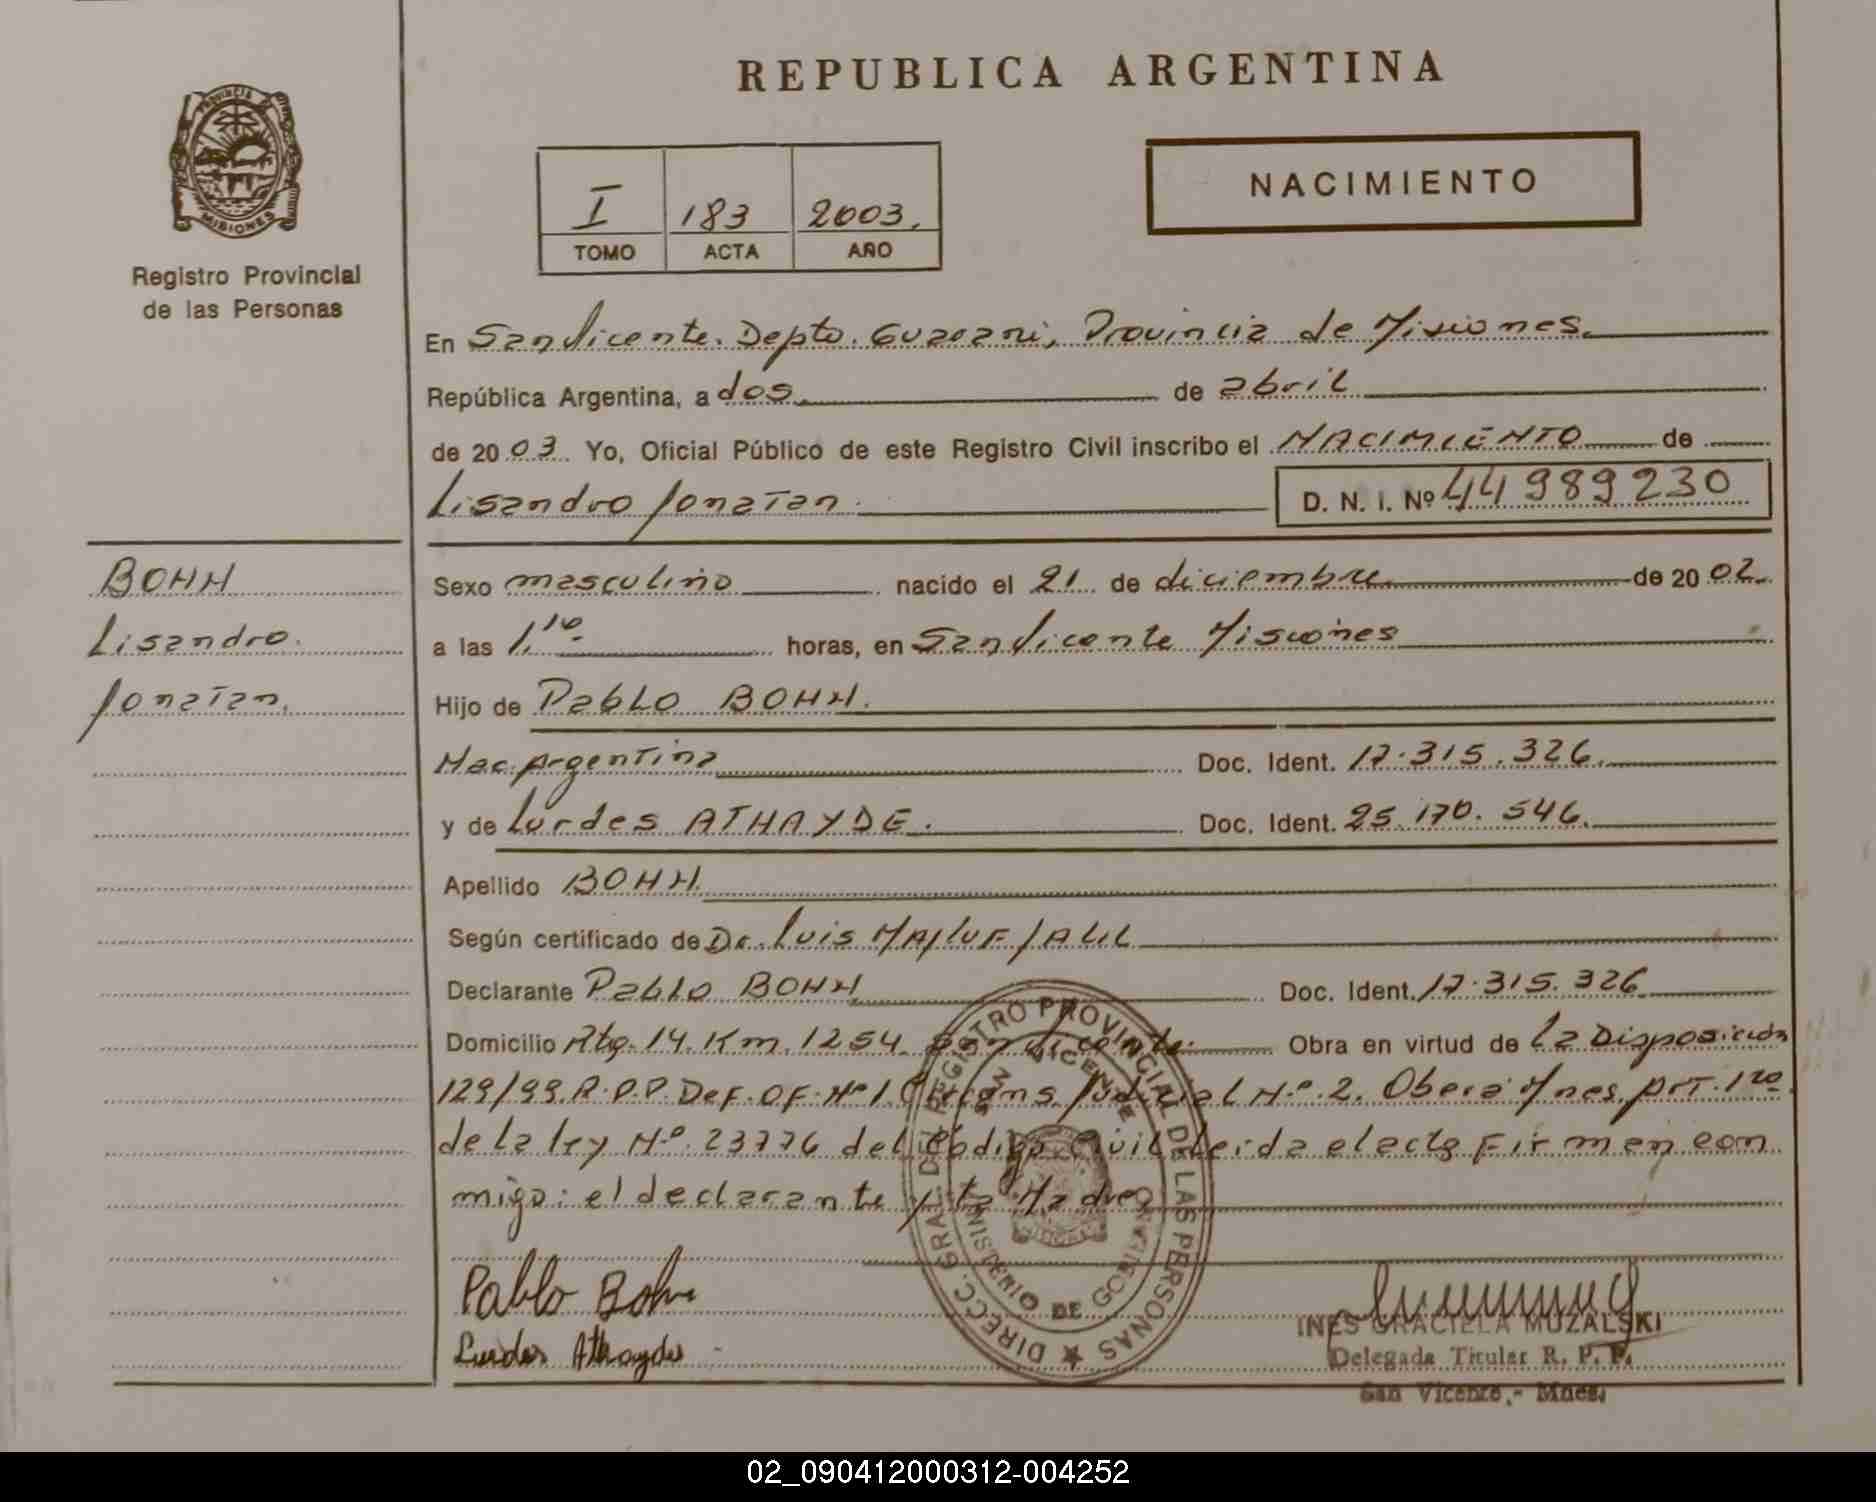 REPUBLICA ARGENTINA
PROVINCIA DE
MISIONES
Registro Provincial
de las Personas
I 183 2003.
TOMO ACTA AÑO
NACIMIENTO
En San Vicente. Depto. Guarani, Provincia de Misiones.
República Argentina, a dos de abril
de 2003 Yo, Oficial Público de este Registro Civil inscribo el NACIMIENTO de
Lisandro Jonatan. D. N. I. Nº 44989230
BOHN
Lisandro.
Jonatan.
Sexo masculino nacido el 21 de diciembre de 2002.
a las 1.10 horas, en San Vicente Misiones
Hijo de Pablo BOHN.
Nac. Argentina Doc. Ident. 17.315.326.
y de Lurdes ATHAYDE. Doc. Ident. 25.170.546.
Apellido BOHN.
Según certificado de Dr. Luis
Declarante Pablo BOHN Doc. Ident. 17.315.326
Domicilio Rta. 14. Km. 1254. San Vicente. Obra en virtud de la Disposición
129/99 R.P.P. Def. Of. Nº 1 Circuns. Judicial Nº 2. Obera Mnes. prt. 1ro.
de la ley Nº 23776 del Código Civil Leida el acta Firman con
migo: el declarante y la Madre
DIRECC. GRAL. DEL REGISTRO PROVINCIAL DE LAS PERSONAS
SAN VICENTE
MINISTERIO DE GOBIERNO
Pablo Bohn
Lurdes Athayde
INES GRACIELA MUZALSKI
Delegada Titular R. P. P.
San Vicente,- Mnes.
02_090412000312-004252